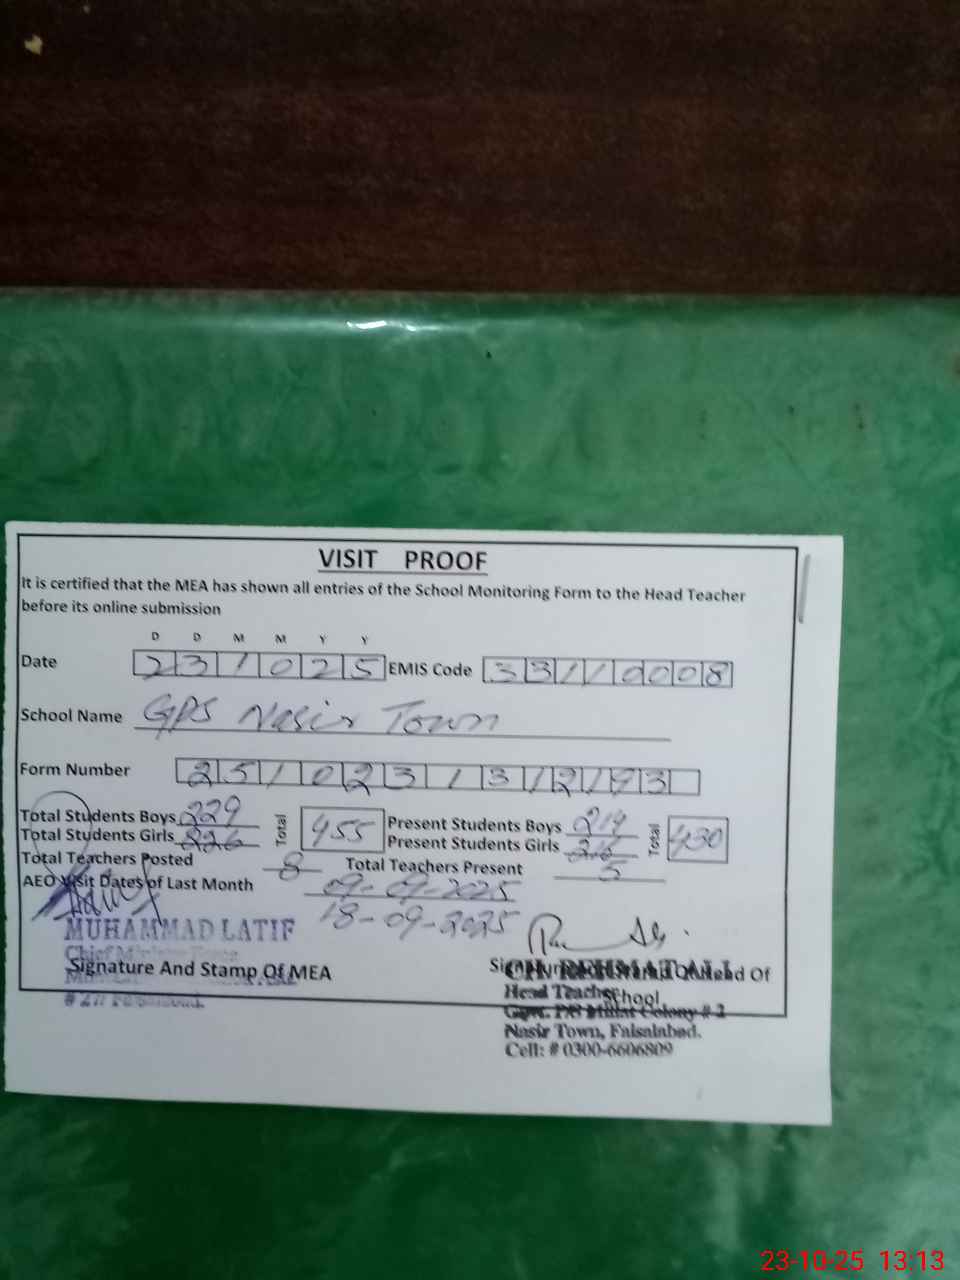 VISIT PROOF
It is certified that the MEA has shown all entries of the School Monitoring Form to the Head Teacher
before its online submission
D D M M Y Y
Date 231025 EMIS Code 33110008
School Name GPS Nasir Town
Form Number 25102313
Total Students Boys 229 Total 455 Present Students Boys 214 Total 430
Total Students Girls 226 Present Students Girls
Total Teachers Posted 8 Total Teachers Present 5
AEO Visit Dates of Last Month 09-09-2025
18-09-2025
MUHAMMAD LATIF
Signature And Stamp Of MEA
Head Of
Head Teacher
School
Govt. P/S Millat Colony # 2
Nasir Town, Faisalabad.
Cell: # 0300-6606809
23-10-25 13:13